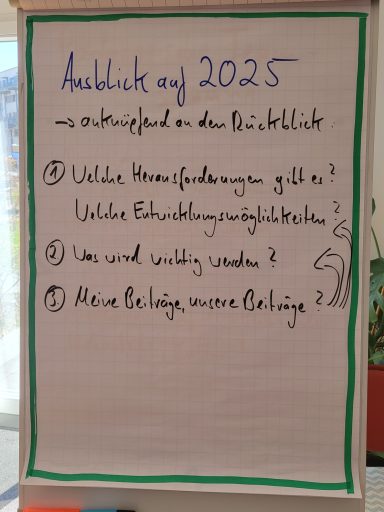 Ausblick auf 2025
→ anknüpfend an den Rückblick.
① Welche Herausforderungen gibt es?
Welche Entwicklungsmöglichkeiten?
② Was wird wichtig werden?
③ Meine Beiträge, unsere Beiträge?